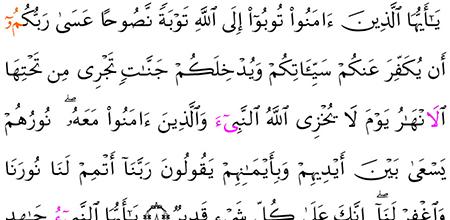 يَٰٓأَيُّهَا ٱلَّذِينَ ءَامَنُوا۟ تُوبُوٓا۟ إِلَى ٱللَّهِ تَوْبَةً نَّصُوحًا عَسَىٰ رَبُّكُمُۥٓ
أَن يُكَفِّرَ عَنكُمْ سَيِّـَٔاتِكُمْ وَيُدْخِلَكُمْ جَنَّٰتٍ تَجْرِى مِن تَحْتِهَا
ٱلَانْهَٰرُ يَوْمَ لَا يُخْزِى ٱللَّهُ ٱلنَّبِىٓءَ وَٱلَّذِينَ ءَامَنُوا۟ مَعَهُۥ ۖ نُورُهُمْ
يَسْعَىٰ بَيْنَ أَيْدِيهِمْ وَبِأَيْمَٰنِهِمْ يَقُولُونَ رَبَّنَآ أَتْمِمْ لَنَا نُورَنَا
وَٱغْفِرْ لَنَآ ۖ إِنَّكَ عَلَىٰ كُلِّ شَىْءٍ قَدِيرٌ ۝٨ يَٰٓأَيُّهَا ٱلنَّبِىٓءُ جَٰهِدِ